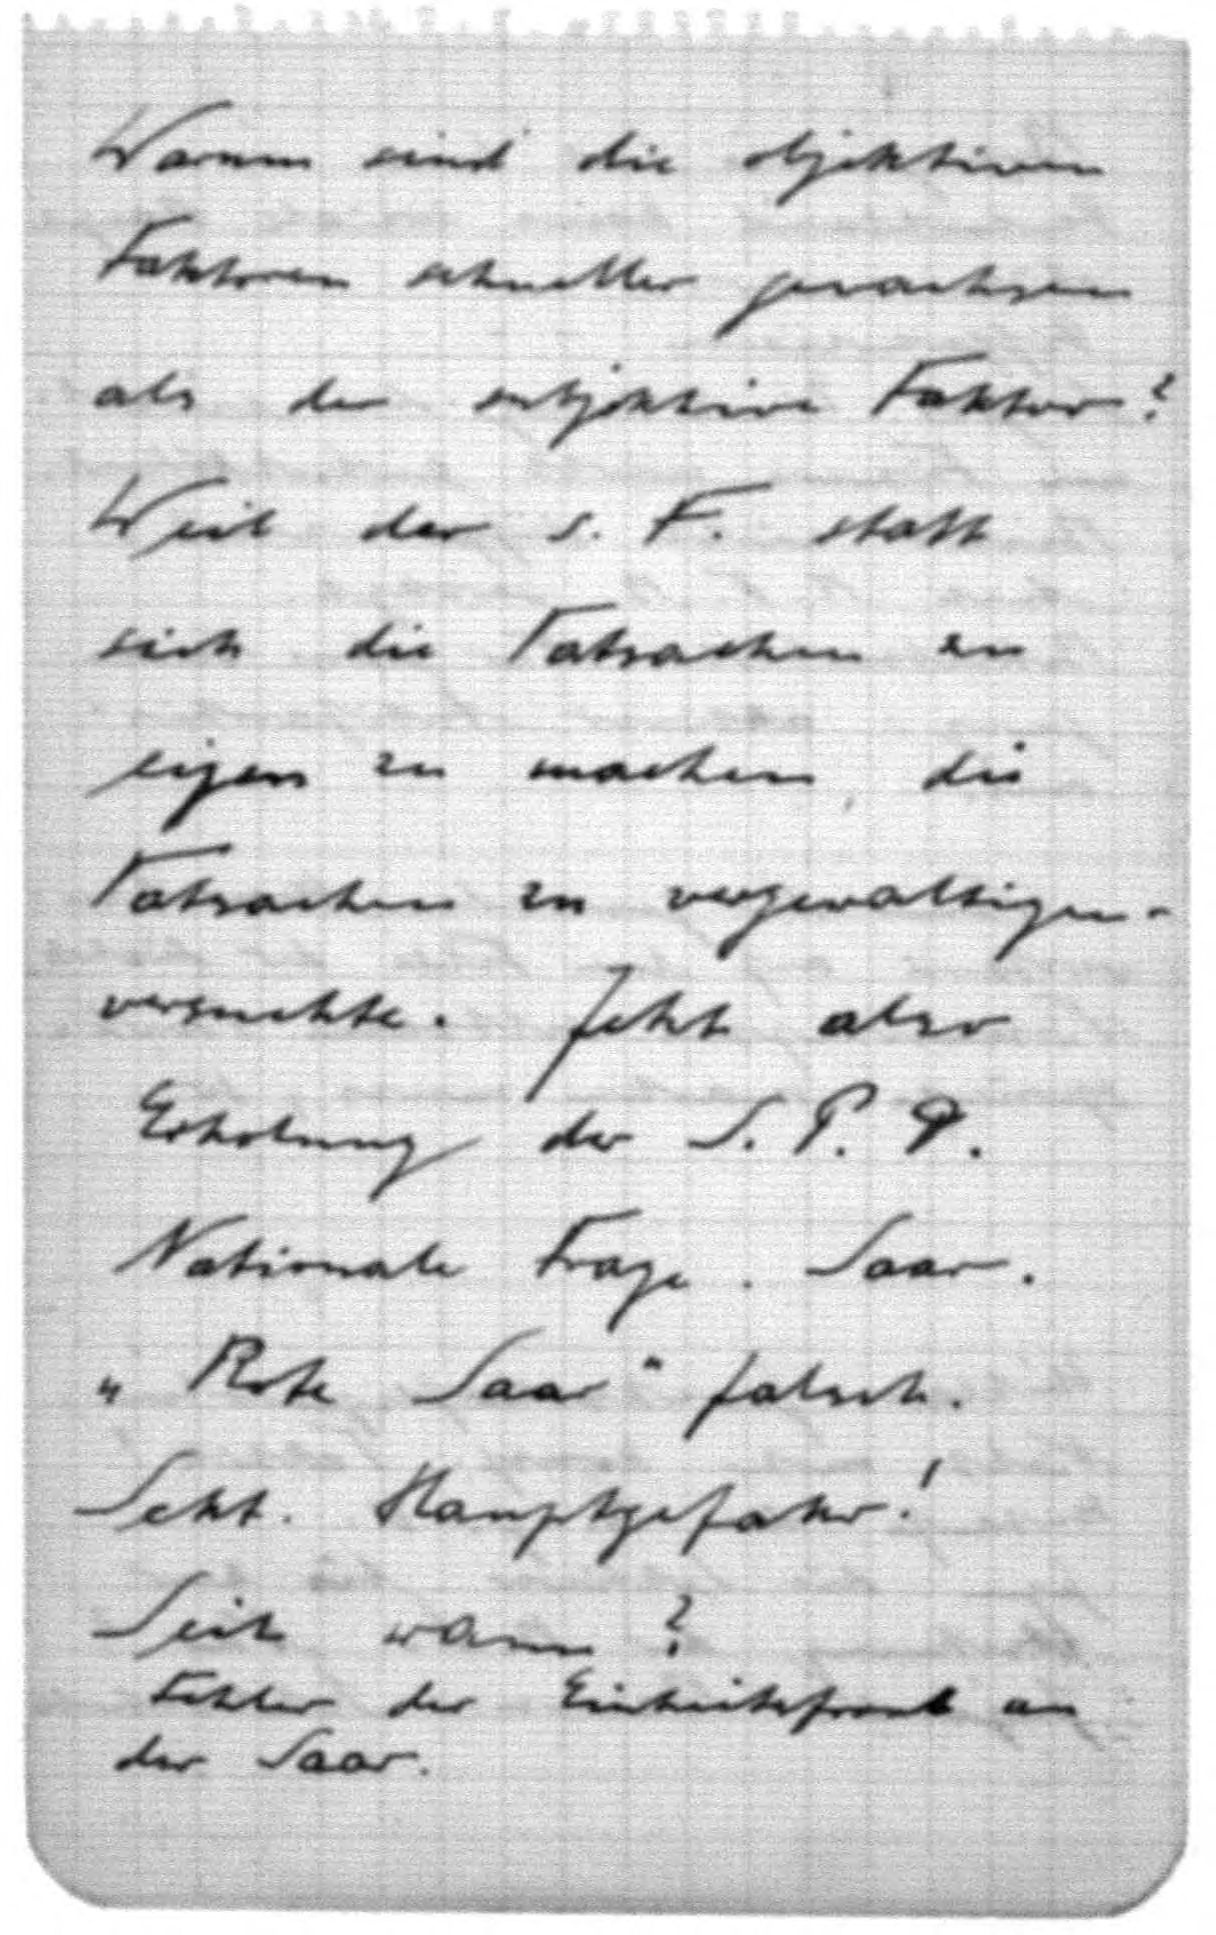 Warum sind die objektiven
Faktoren schneller gewachsen
als der subjektive Faktor?
Weil der s. F. statt
sich die Tatsachen zu
eigen zu machen, die
Tatsachen zu vergewaltigen
versuchte. Jetzt also
Erholung der S. P. D.
Nationale Frage. Saar.
„Rote Saar“ falsch.
Sekt. Hauptgefahr!
Seit wann?
Fehler der Einheitsfront an
der Saar.